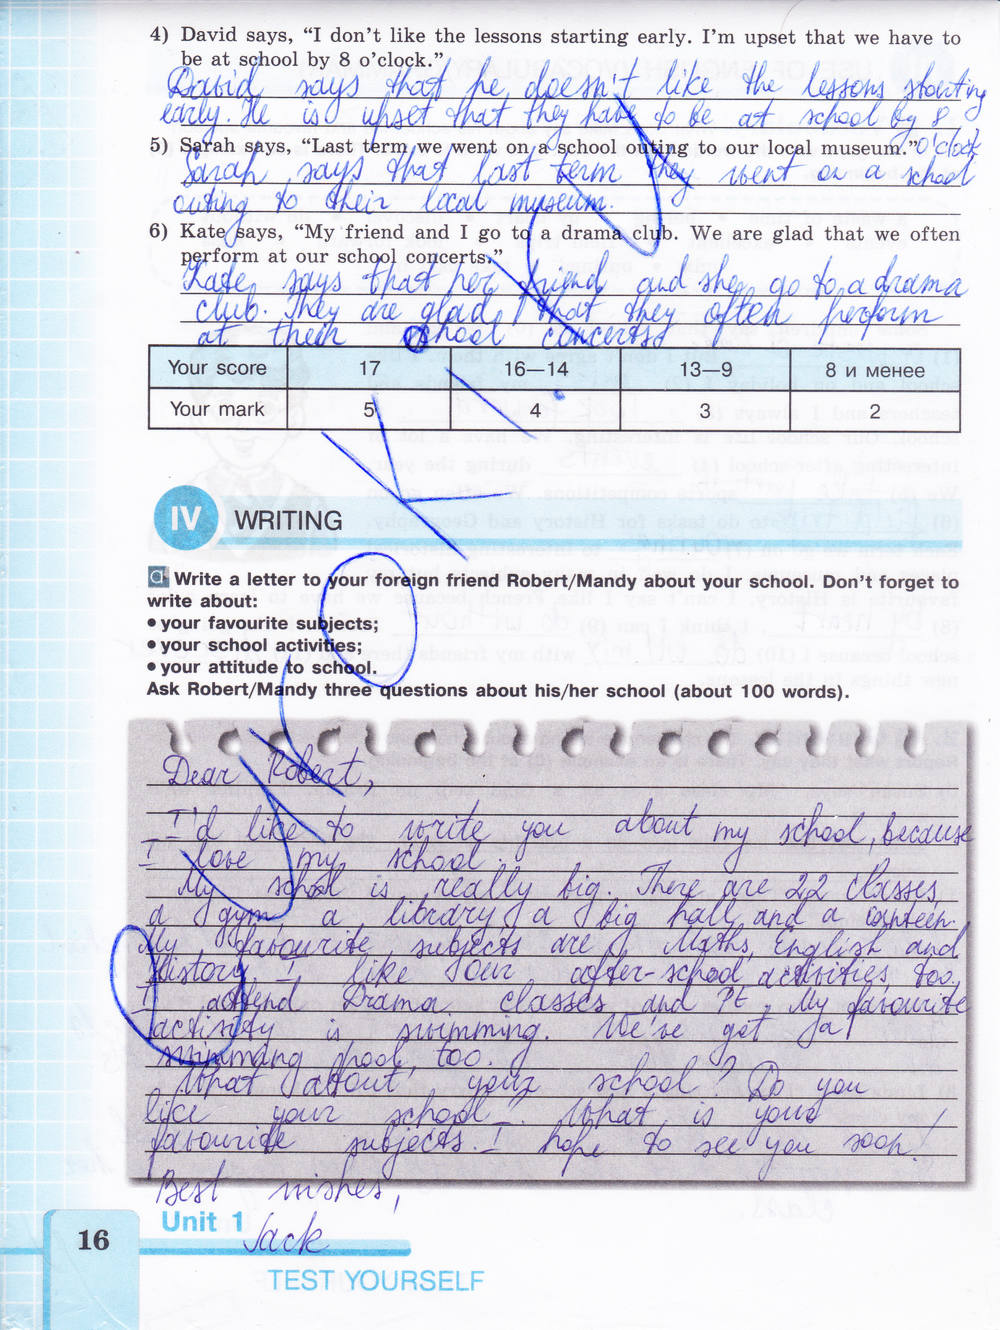 4) David says, “I don’t like the lessons starting early. I’m upset that we have to
be at school by 8 o’clock.”
David says that he doesn't like the lessons starting
early. He is upset that they have to be at school by 8
o'clock
5) Sarah says, “Last term we went on a school outing to our local museum.”
Sarah says that last term they went on a school
outing to their local museum.
6) Kate says, “My friend and I go to a drama club. We are glad that we often
perform at our school concerts.”
Kate says that her friend and she go to a drama
club. They are glad that they often perform
at their school concerts
Your score 17 16—14 13—9 8 и менее
Your mark 5 4 3 2
IV WRITING
a Write a letter to your foreign friend Robert/Mandy about your school. Don’t forget to
write about:
• your favourite subjects;
• your school activities;
• your attitude to school.
Ask Robert/Mandy three questions about his/her school (about 100 words).
Dear Robert,
I'd like to write you about my school, because
I love my school.
My school is really big. There are 22 classes,
a gym, a library, a big hall and a canteen.
My favourite subjects are Maths, English and
History. I like our after-school activities, too.
I attend Drama classes and PE. My favourite
activity is swimming. We've got a
swimming pool, too.
What about your school? Do you
like your school? What is your
favourite subjects. I hope to see you soon!
Best wishes,
Jack
16
Unit 1
TEST YOURSELF